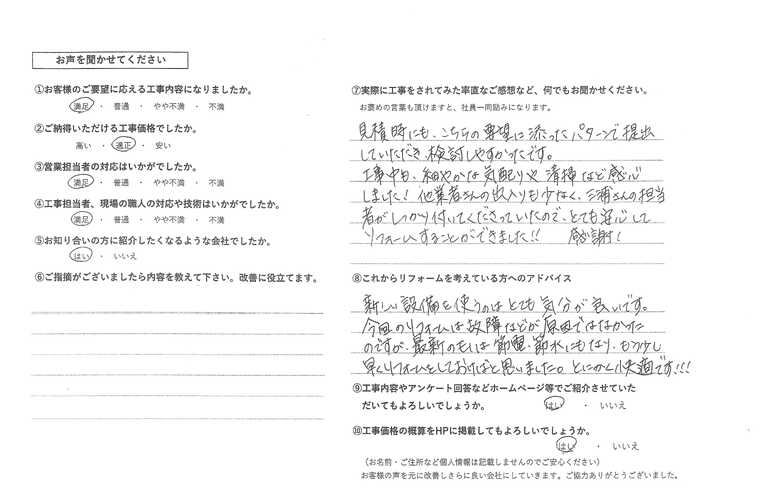 お声を聞かせてください
①お客様のご要望に応える工事内容になりましたか。
満足 ・ 普通 ・ やや不満 ・ 不満
②ご納得いただける工事価格でしたか。
高い ・ 適正 ・ 安い
③営業担当者の対応はいかがでしたか。
満足 ・ 普通 ・ やや不満 ・ 不満
④工事担当者、現場の職人の対応や技術はいかがでしたか。
満足 ・ 普通 ・ やや不満 ・ 不満
⑤お知り合いの方に紹介したくなるような会社でしたか。
はい ・ いいえ
⑥ご指摘がございましたら内容を教えて下さい。改善に役立てます。
⑦実際に工事をされてみた率直なご感想など、何でもお聞かせください。
お褒めの言葉も頂けますと、社員一同励みになります。
見積時にも、こちらの要望に添ったパターンで提出
していただき検討しやすかったです。
工事中も、細やかな気配りや清掃など感心
しました！他業者さんの出入りも少なく、三浦さんの担当
者がしっかり付いてくださっていたので、とても安心して
リフォームすることができました!! 感謝！
⑧これからリフォームを考えている方へのアドバイス
新しい設備を使うのはとても気分が良いです。
今回のリフォームは故障などが原因ではなかった
のですが、最新のものは節電、節水にもなり、もう少し
早くリフォームをしておけばと思いました。とにかく快適です!!!
⑨工事内容やアンケート回答などホームページ等でご紹介させていた
だいてもよろしいでしょうか。 はい ・ いいえ
⑩工事価格の概算をHPに掲載してもよろしいでしょうか。
はい ・ いいえ
（お名前・ご住所など個人情報は記載しませんのでご安心ください）
お客様の声を元に改善しさらに良い会社にしていきます。ご協力ありがとうございました。